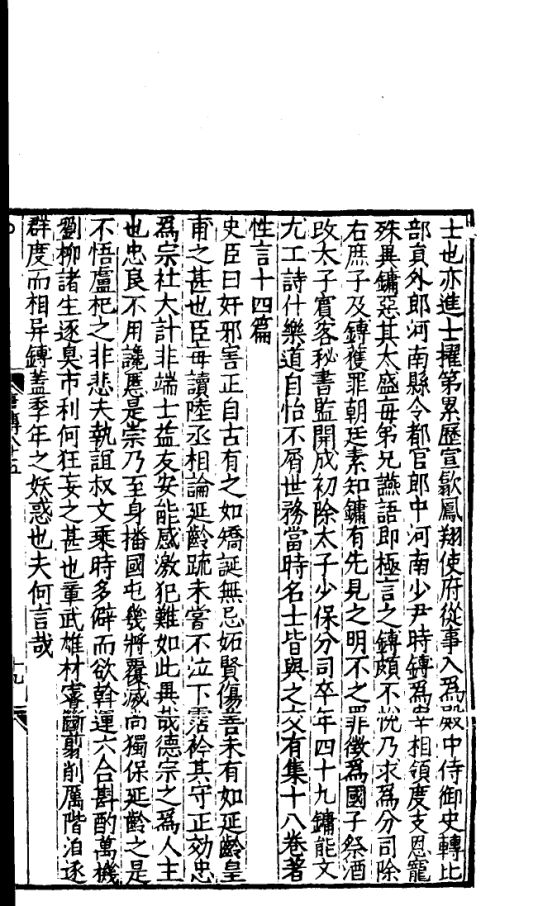 士也亦進士擢第累歷宣歙鳳翔使府從事入爲殿中侍御史轉比
部員外郎河南縣令都官郎中河南少尹時鎛爲宰相領度支恩寵
殊異鏞惡其太盛每弟兄讌語即極言之鎛頗不悅乃求爲分司除
右庶子及鎛獲罪朝廷素知鏞有先見之明不之罪徵爲國子祭酒
改太子賓客秘書監開成初除太子少保分司卒年四十九鏞能文
尤工詩什樂道自怡不屑世務當時名士皆與之交有集十八卷著
性言十四篇
史臣曰奸邪害正自古有之如矯誕無忌妬賢傷善未有如延齡皇
甫之甚也臣每讀陸丞相論延齡疏未嘗不泣下霑衿其守正效忠
爲宗社大計非端士益友安能感激犯難如此異哉德宗之爲人主
也忠良不用讒慝是崇乃至身播國屯幾將覆滅尚獨保延齡之是
不悟盧杞之非悲夫執誼叔文乘時多僻而欲斡運六合斟酌萬機
劉柳諸生逐臭市利何狂妄之甚也章武雄材睿斷翦削厲階洎逐
群度而相异鎛蓋季年之妖惑也夫何言哉
十九